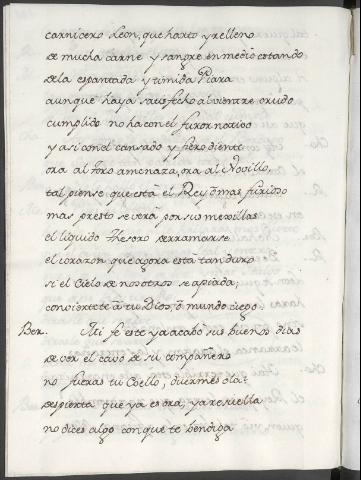 carnicero Leon, que harto y relleno
de mucha carne y sangre enmedio estando
dela espantada y timida Piara
aunque haya satisfecho al vientre crudo
cumplido no ha con el furor nativo
y asi con el cansado y fiero diente
ora al Toro amenaza, ora al Novillo,
tal piense que está el Rey õ mas furioso
mas presto se verá por sus mexillas
el liquido Thesoro derramarse
el corazon que agora está tan duro
si el Cielo de nosotros se apiada,
conviertete â tu Dios, ô mundo ciego.
Ber. Ati fe este ya acabó sus buenos dias
de ver el cavo de su compañero
no fueras tu Coello, duermes ola?
despierta que ya es ora, ya resuella
no dices algo con que te bendiga